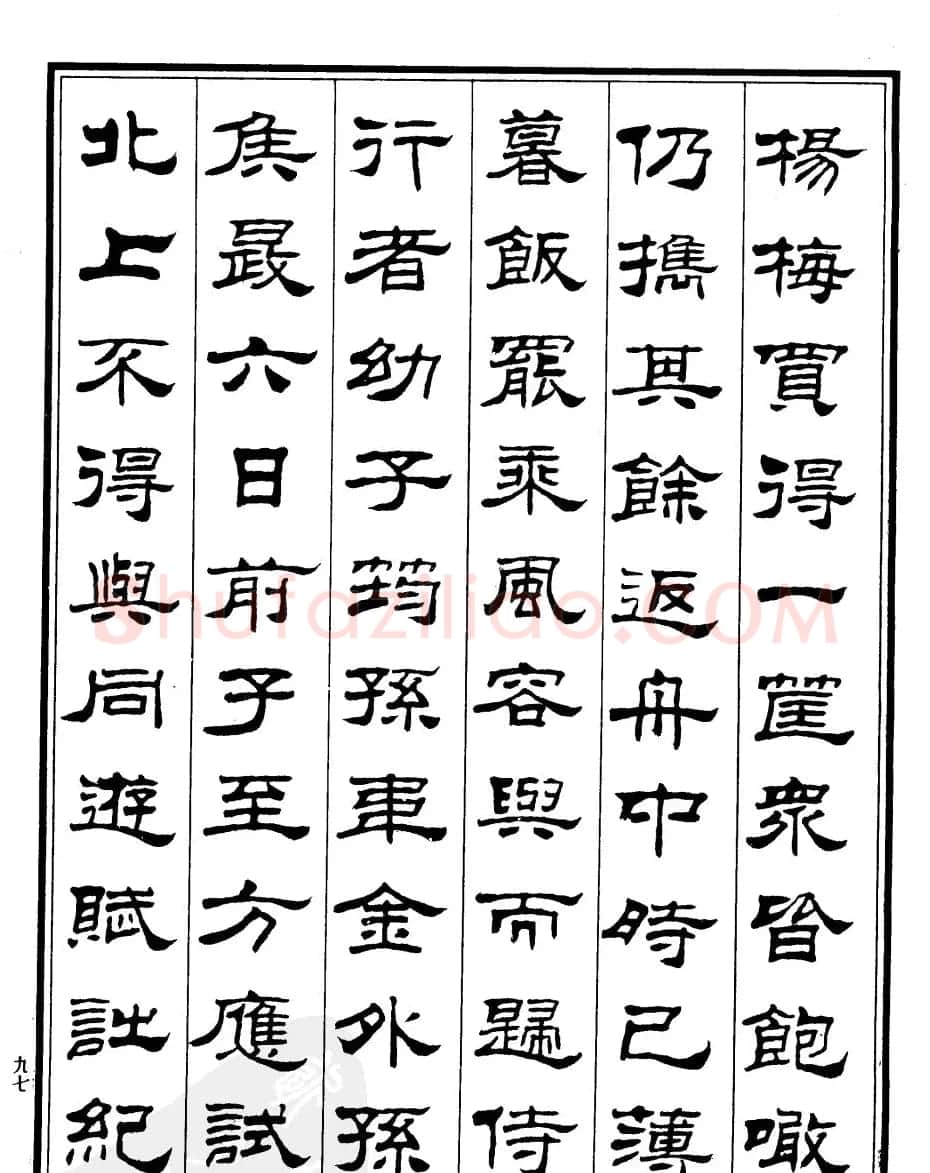 楊梅買得一筐眾皆飽噉
仍攜其餘返舟中時已薄
暮飯罷乘風容與而歸侍
行者幼子筠孫金外孫
矦六日前子至方應試
北上不得與同遊賦詩紀
九七
shufaziliao.COM